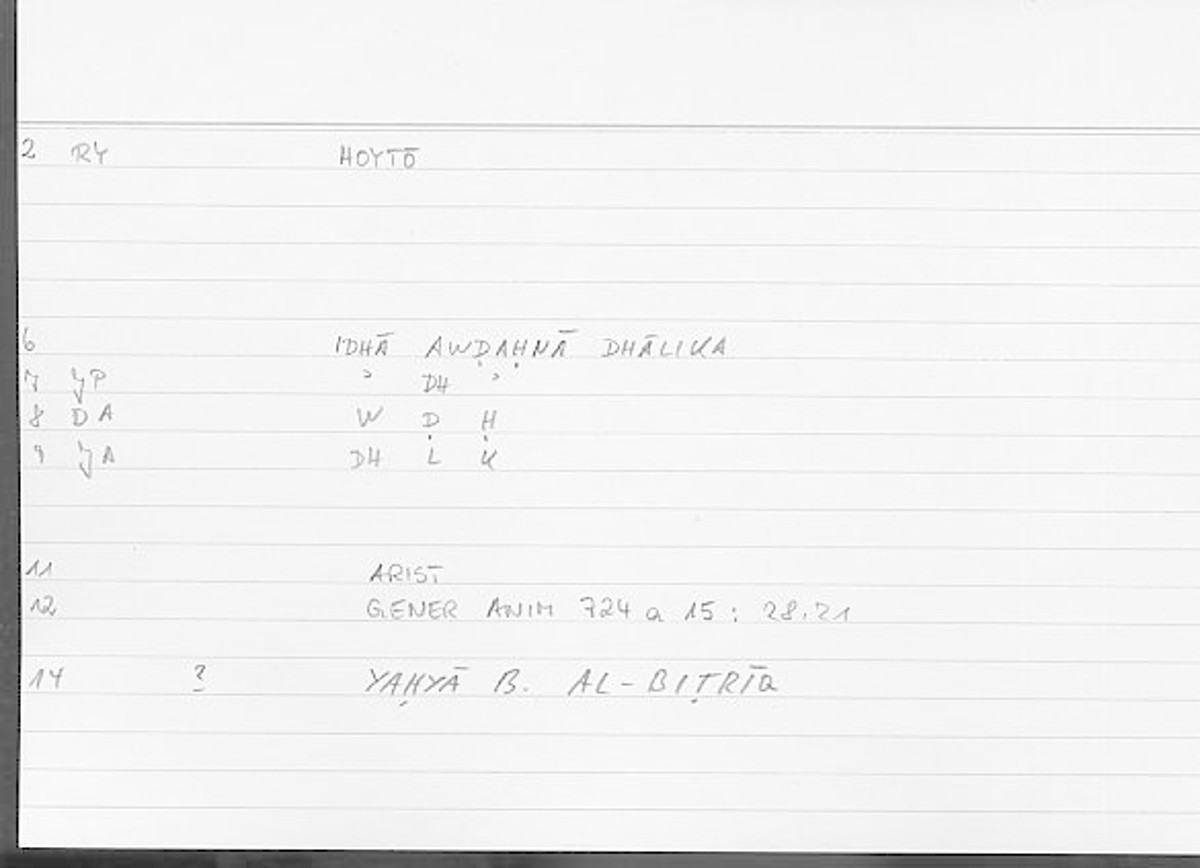 2 RY HOYTŌ
6 IDHĀ AWḌAḤNĀ DHĀLIKA
7 JP ʾ DH ʾ
8 DA W Ḍ Ḥ
9 JA DH L K
11 ARIST
12 GENER ANIM 724 a 15 : 28.21
14 ? YAḤYĀ B. AL-BIṬRĪQ